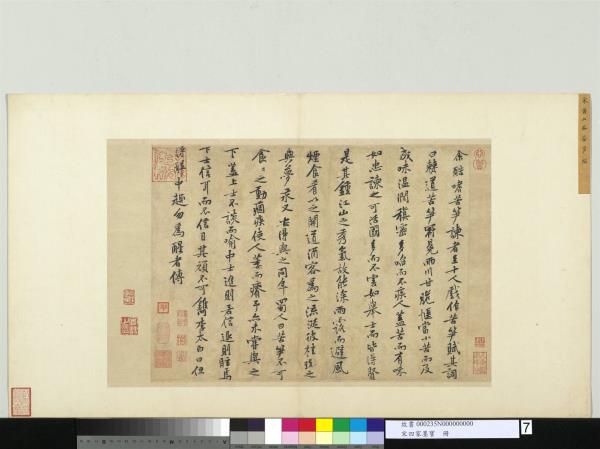 余酷嗜苦筍諫者至十人戲作苦筍賦其詞
曰僰道苦筍冠冕兩川甘脆愜當小苦而反
成味溫潤縝密多啗而不疾人蓋苦而有味
如忠諫之可活國多而不害如舉士而皆得賢
是其鍾江山之秀氣故能深雨露而避風
煙食肴以之開道酒客為之流涎彼桂玫之
與夢永又安得與之同年蜀人曰苦筍不可
食〻之動痼疾使人萎而瘠予亦未嘗與之
下蓋上士不談而喻中士進則若信退則眩焉
下士信耳而不信目其頑不可鐫李太白曰但
得醉中趣勿為醒者傳
故書 000235N000000000
宋四家墨寶 冊
7